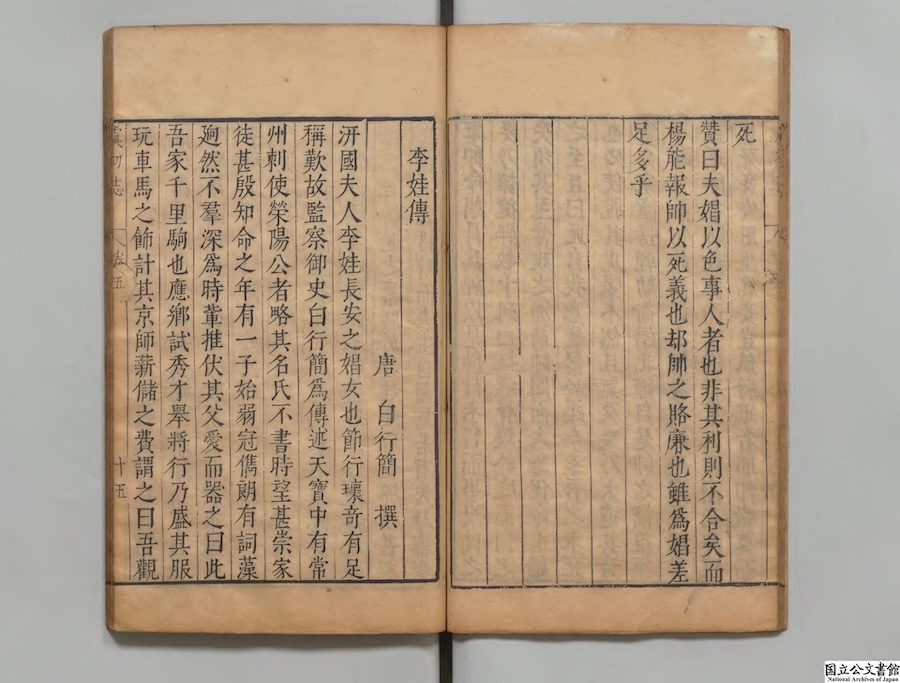 死
贊曰夫娼以色事人者也非其利則不合矣而
楊能報帥以死義也却帥之賂廉也雖爲娼差
足多乎
李娃傳
唐 白行簡 撰
汧國夫人李娃長安之娼女也節行瓌奇有足
稱歎故監察御史白行簡爲傳述天寶中有常
州刺使滎陽公者略其名氏不書時望甚崇家
徒甚殷知命之年有一子始弱冠儁朗有詞藻
逈然不羣深爲時輩推伏其父愛而器之曰此
吾家千里駒也應鄉試秀才舉將行乃盛其服
玩車馬之飾計其京師薪儲之費謂之曰吾觀
虞初志 卷五 十五
国立公文書館
National Archives of Japan